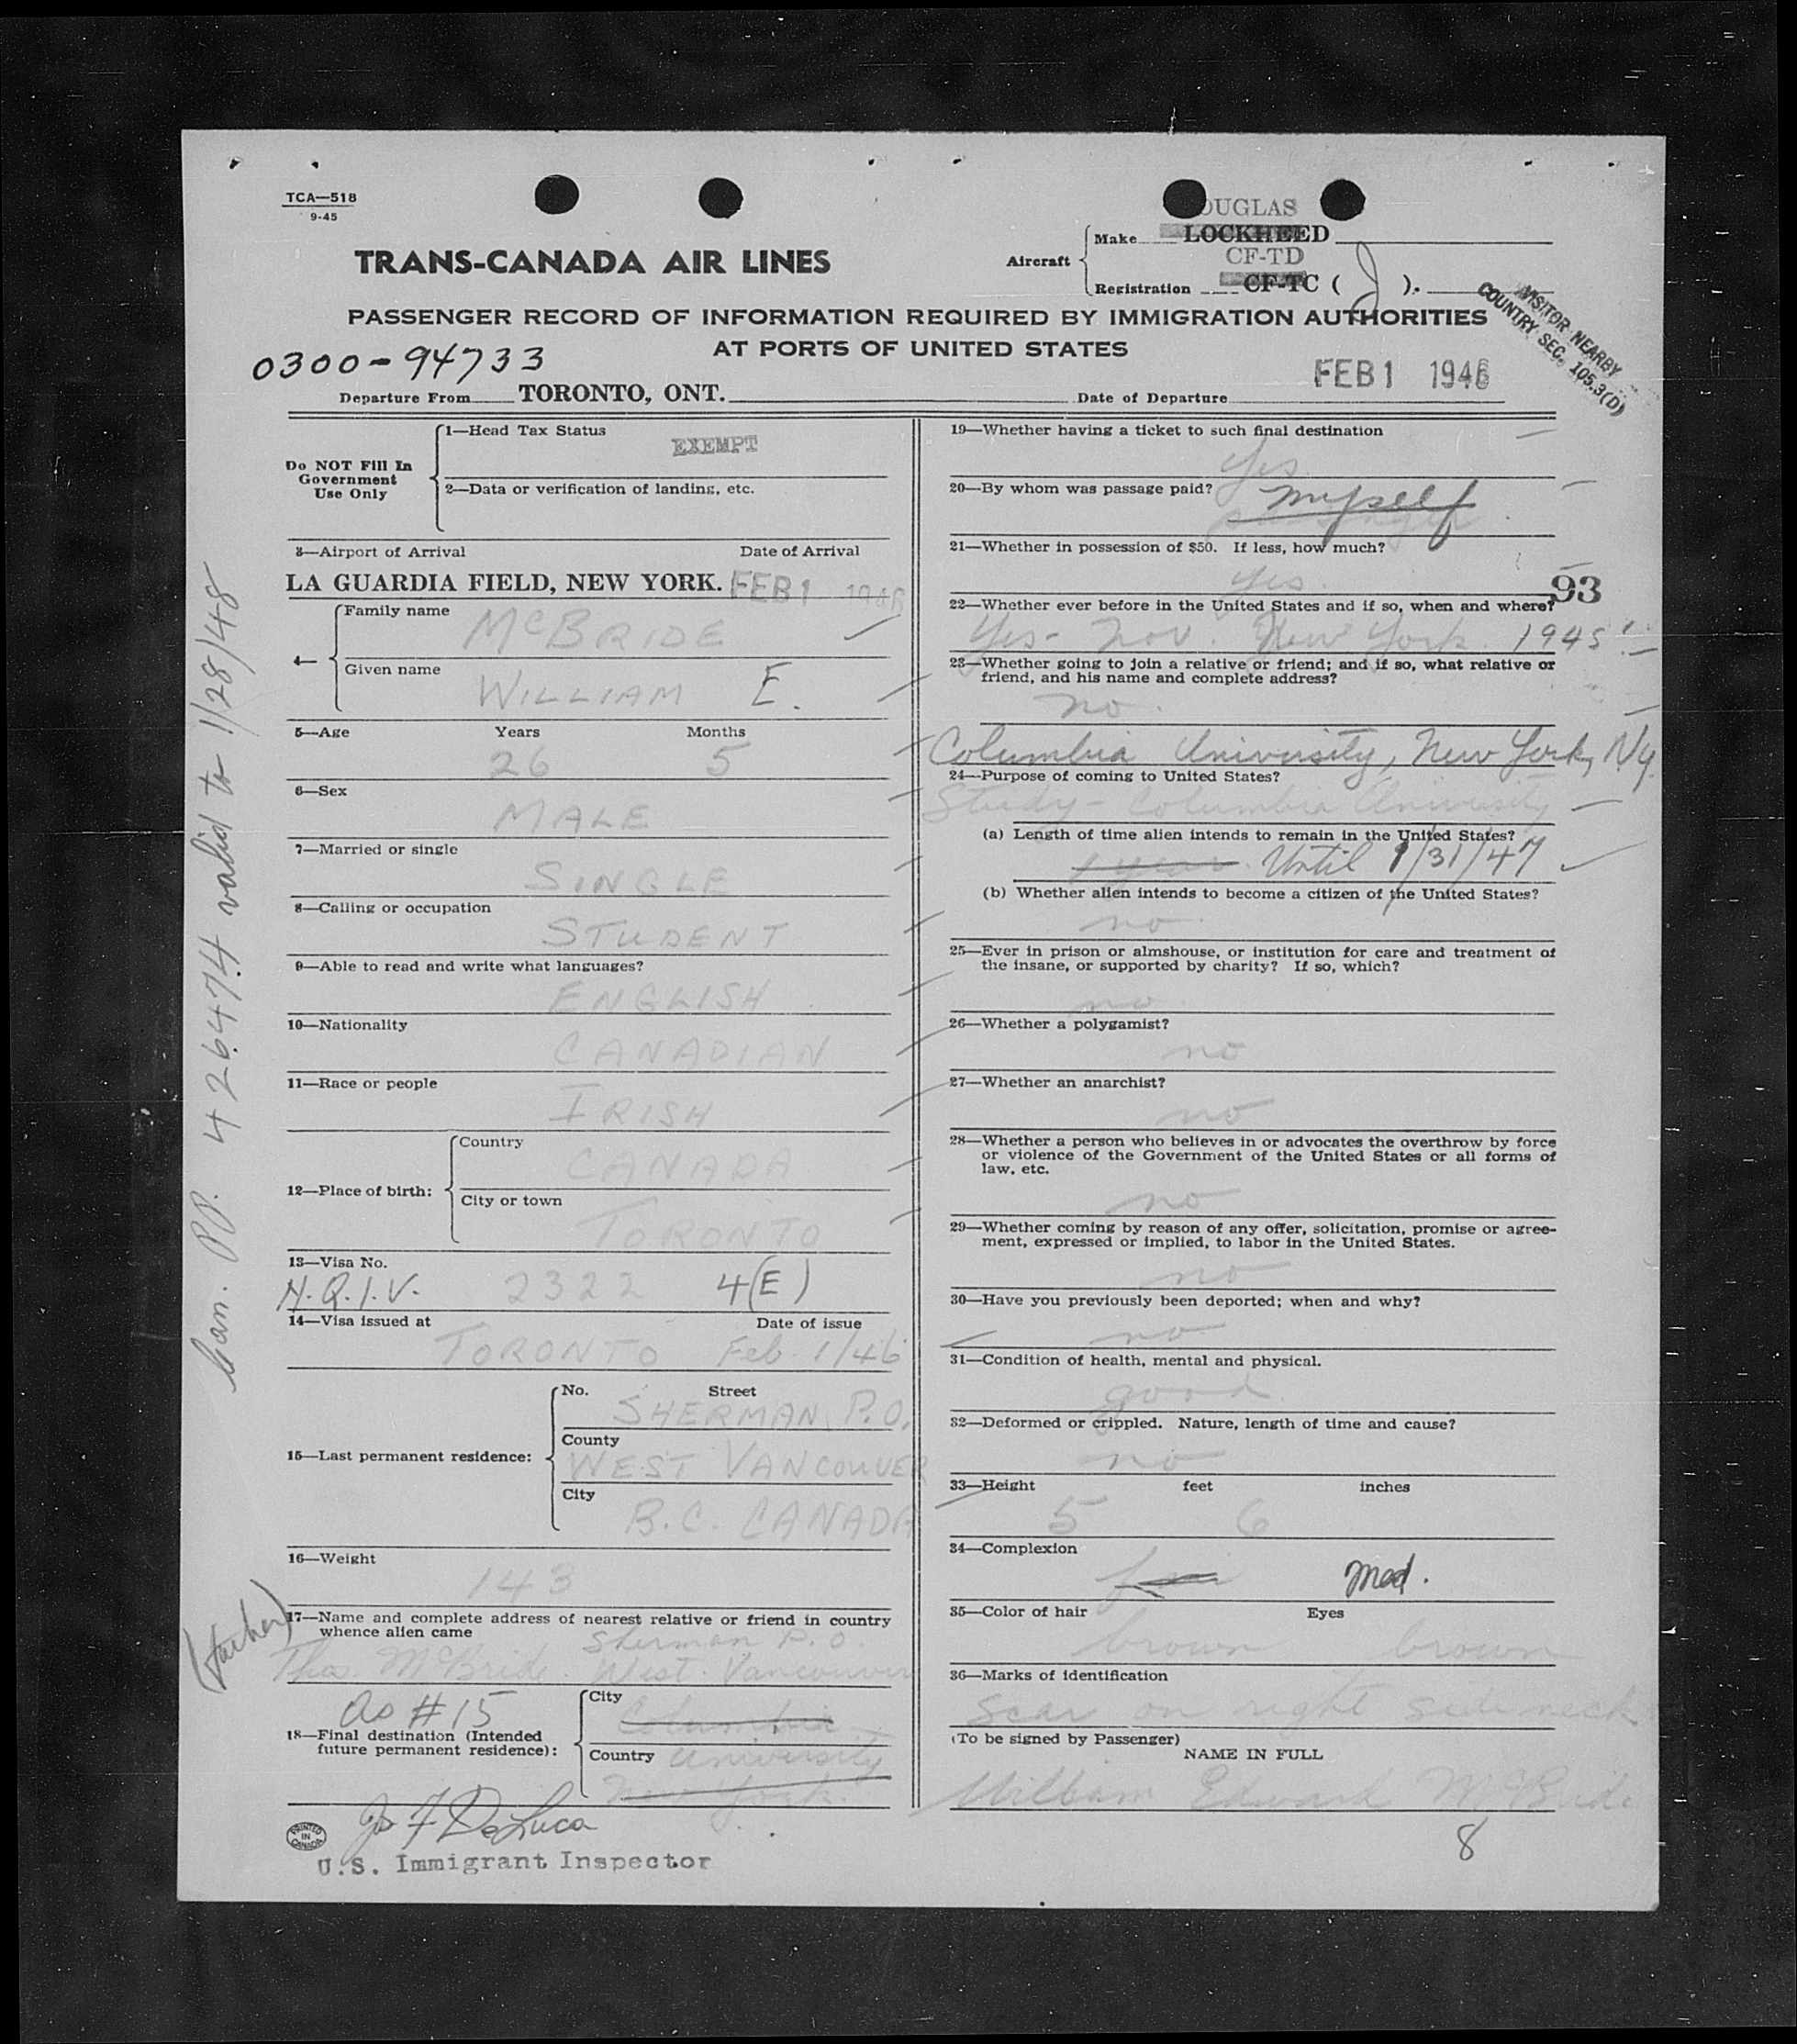 TCA—518
9-45
DOUGLAS
Make LOCKHEED
TRANS-CANADA AIR LINES
Aircraft
CF-TD
Registration CF-TC ( J ).
PASSENGER RECORD OF INFORMATION REQUIRED BY IMMIGRATION AUTHORITIES
AT PORTS OF UNITED STATES
VISITOR NEARBY
COUNTRY SEC. 105.3(D)
0300-94733
FEB 1 1946
Departure From TORONTO, ONT. Date of Departure
Do NOT Fill In
Government
Use Only
1—Head Tax Status
EXEMPT
2—Data or verification of landing, etc.
3—Airport of Arrival Date of Arrival
LA GUARDIA FIELD, NEW YORK. FEB 1 1946
4—
Family name McBRIDE
Given name WILLIAM E.
5—Age Years Months
26 5
6—Sex
MALE
7—Married or single
SINGLE
8—Calling or occupation
STUDENT
9—Able to read and write what languages?
ENGLISH
10—Nationality
CANADIAN
11—Race or people
IRISH
12—Place of birth:
Country
CANADA
City or town
TORONTO
13—Visa No.
N.Q.I.V. 2322 4(E)
14—Visa issued at Date of issue
TORONTO Feb. 1/46
15—Last permanent residence:
No. Street
SHERMAN P.O.
County
WEST VANCOUVER
City
B.C. CANADA
16—Weight
143
(father)
17—Name and complete address of nearest relative or friend in country
whence alien came
Sherman P.O.
Thos. McBride. West. Vancouver
as #15
18—Final destination (Intended
future permanent residence):
City
Columbia
Country University
New York.
Jos F DeLuca
PRINTED
IN
CANADA
U.S. Immigrant Inspector
Can. PP. 4 26474 valid to 1/28/48
19—Whether having a ticket to such final destination
Yes
20—By whom was passage paid? myself
passenger
21—Whether in possession of $50. If less, how much?
yes.
93
22—Whether ever before in the United States and if so, when and where?
Yes - Nov. New York 1945
23—Whether going to join a relative or friend; and if so, what relative or
friend, and his name and complete address?
no.
Columbia University, New York, Ny.
24—Purpose of coming to United States?
Study - Columbia University
(a) Length of time alien intends to remain in the United States?
1 year. Until 1/31/47
(b) Whether alien intends to become a citizen of the United States?
no.
25—Ever in prison or almshouse, or institution for care and treatment of
the insane, or supported by charity? If so, which?
no
26—Whether a polygamist?
no
27—Whether an anarchist?
no
28—Whether a person who believes in or advocates the overthrow by force
or violence of the Government of the United States or all forms of
law, etc.
no
29—Whether coming by reason of any offer, solicitation, promise or agree-
ment, expressed or implied, to labor in the United States.
no
30—Have you previously been deported; when and why?
no
31—Condition of health, mental and physical.
good
32—Deformed or crippled. Nature, length of time and cause?
no
33—Height feet inches
5 6
34—Complexion
fair Med.
35—Color of hair Eyes
brown brown
36—Marks of identification
Scar on right side neck
(To be signed by Passenger)
NAME IN FULL
William Edward McBride
8